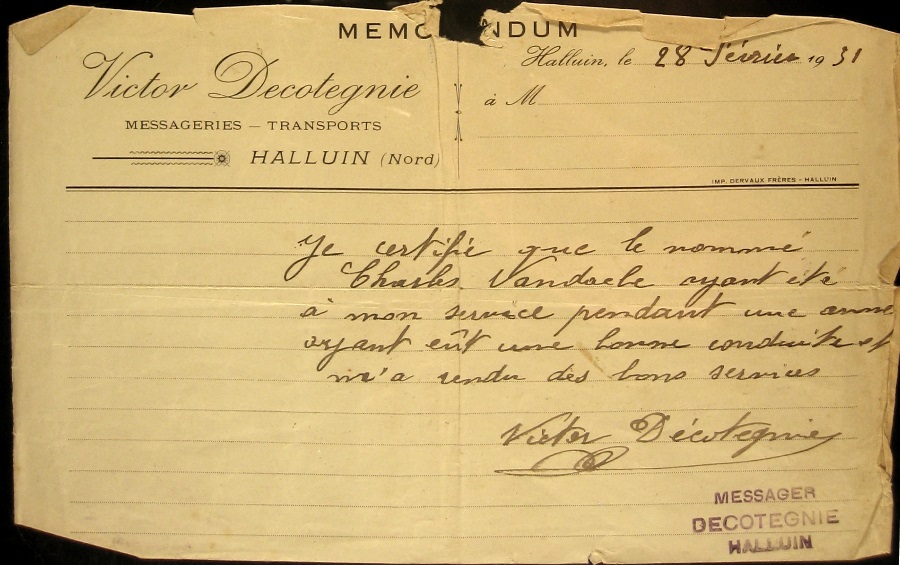 MEMO NDUM
Victor Decotegnie
MESSAGERIES — TRANSPORTS
HALLUIN (Nord)
Halluin, le 28 Février 1931
à M
IMP. DERVAUX FRÈRES - HALLUIN
Je certifie que le nommé
Charles Vandaele ayant été
à mon service pendant une anné
ayant eût une bonne conduite et
m'a rendu des bons services
Victor Décotegnie
MESSAGER
DECOTEGNIE
HALLUIN